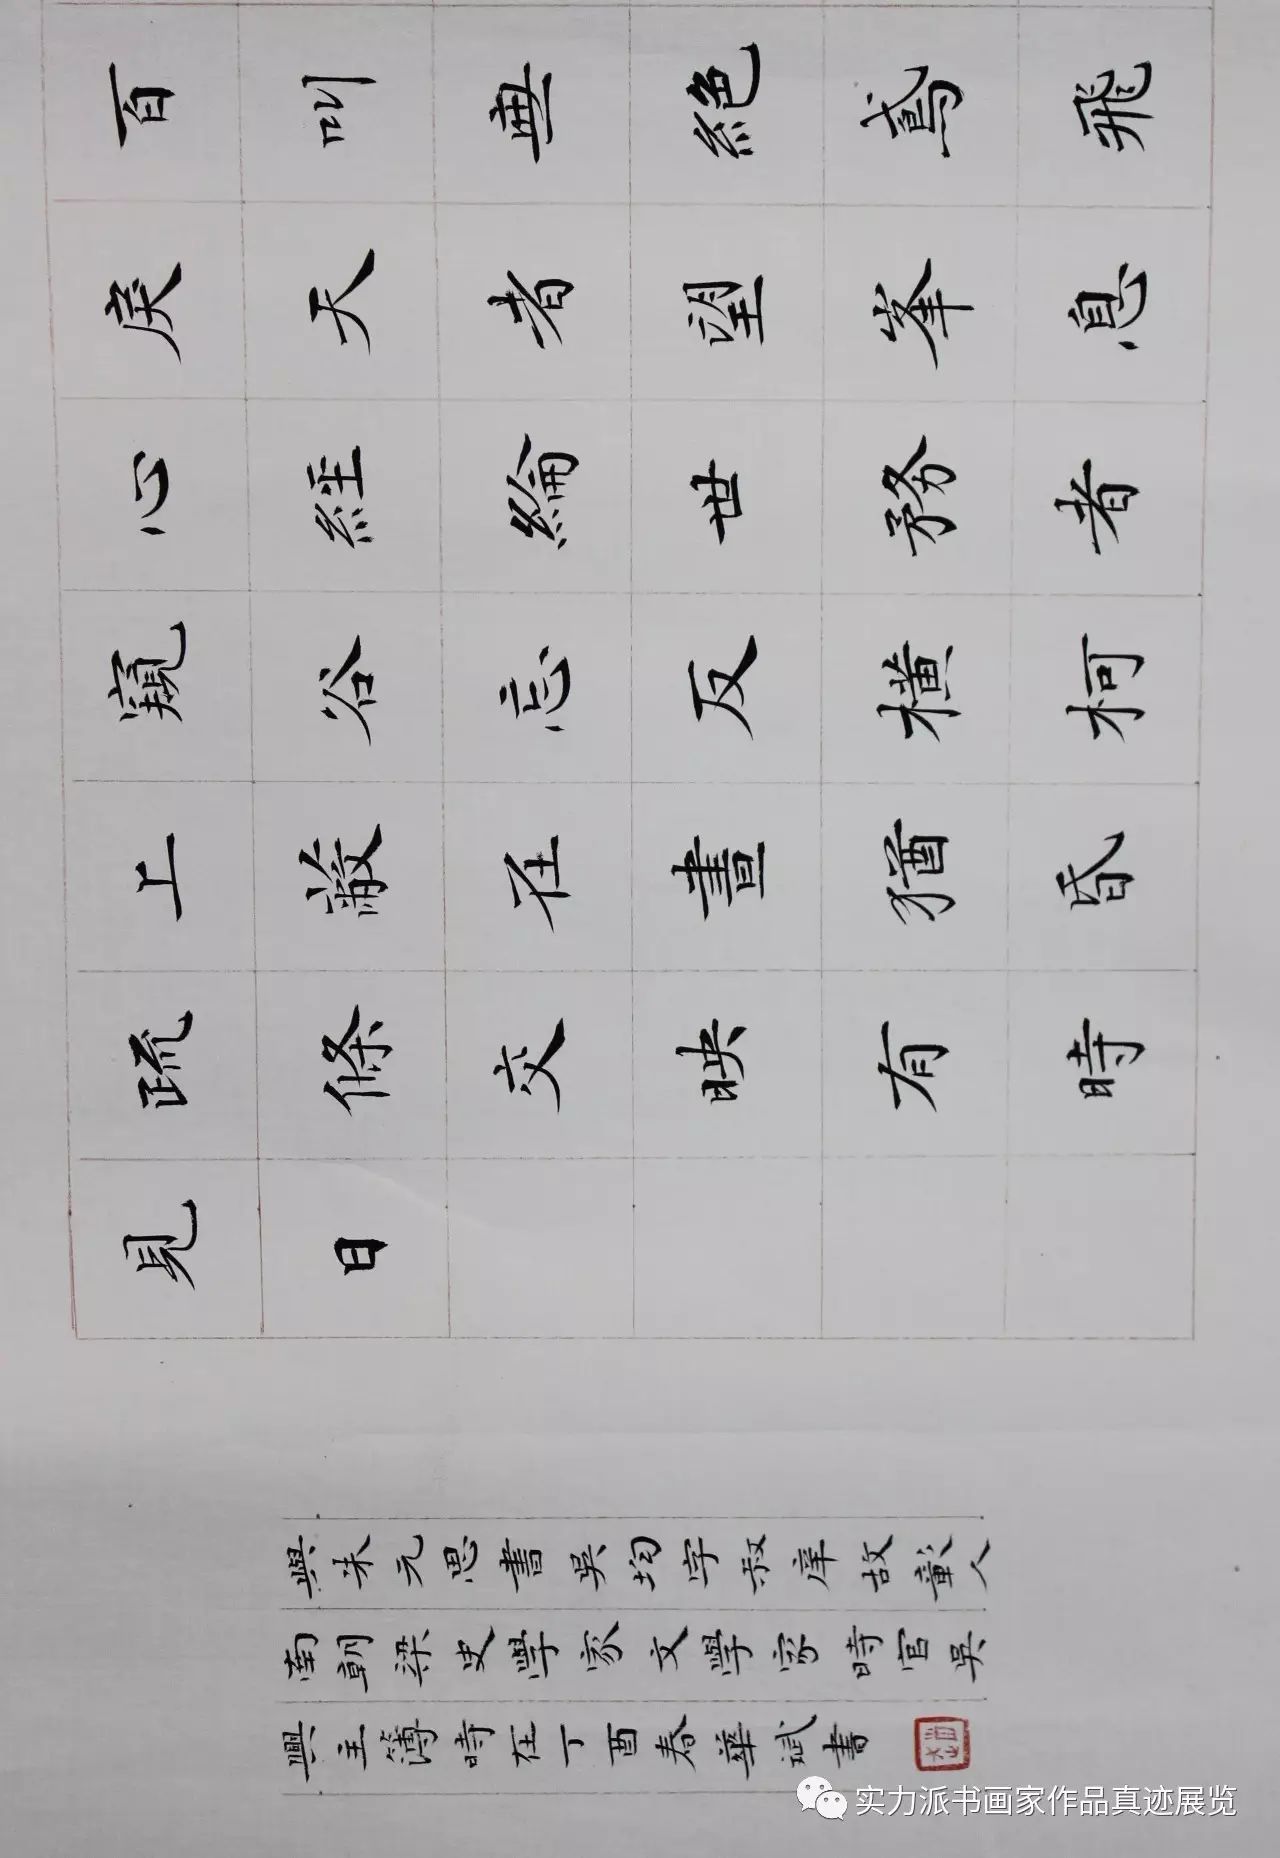 百叫無絕鳶飛
戾天者望峯息
心經綸世務者
窺谷忘反橫柯
上蔽在晝猶昏
疏條交映有時
見日
與朱元思書吳均字叔庠故彰人
南朝梁史學家文學家時官吳
興主簿時在丁酉春華斌書
实力派书画家作品真迹展览